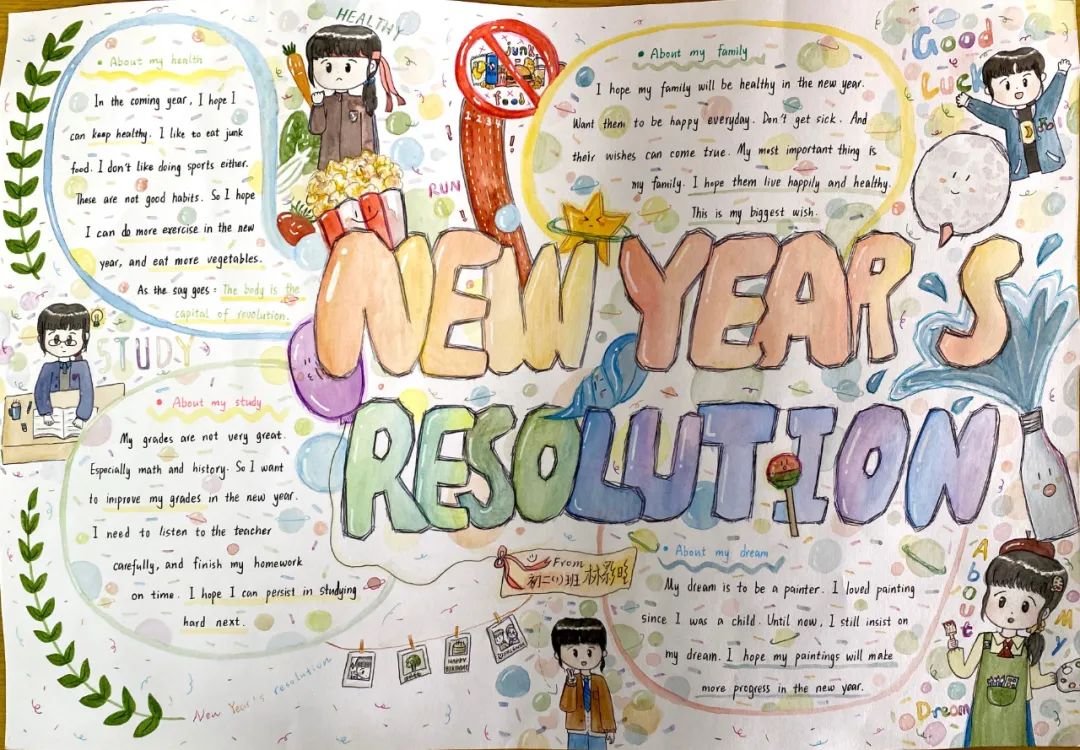 HEALTHY
• About my health
In the coming year, I hope I
can keep healthy. I like to eat junk
food. I don't like doing sports either.
These are not good habits. So I hope
I can do more exercise in the new
year, and eat more vegetables.
As the say goes: The body is the
capital of revolution.
junk
food
1 2 3
RUN
• About my family
I hope my family will be healthy in the new year.
Want them to be happy everyday. Don't get sick. And
their wishes can come true. My most important thing is
my family. I hope them live happily and healthy.
This is my biggest wish.
Good
Luck
NEW YEAR'S
RESOLUTION
STUDY
• About my study
My grades are not very great.
Especially math and history. So I want
to improve my grades in the new year.
I need to listen to the teacher
carefully, and finish my homework
on time. I hope I can persist in studying
hard next.
From
初二(1)班
HAPPY
BIRTHDAY
New Year's resolution
• About my dream
My dream is to be a painter. I loved painting
since I was a child. Until now, I still insist on
my dream. I hope my paintings will make
more progress in the new year.
About
My
Dream